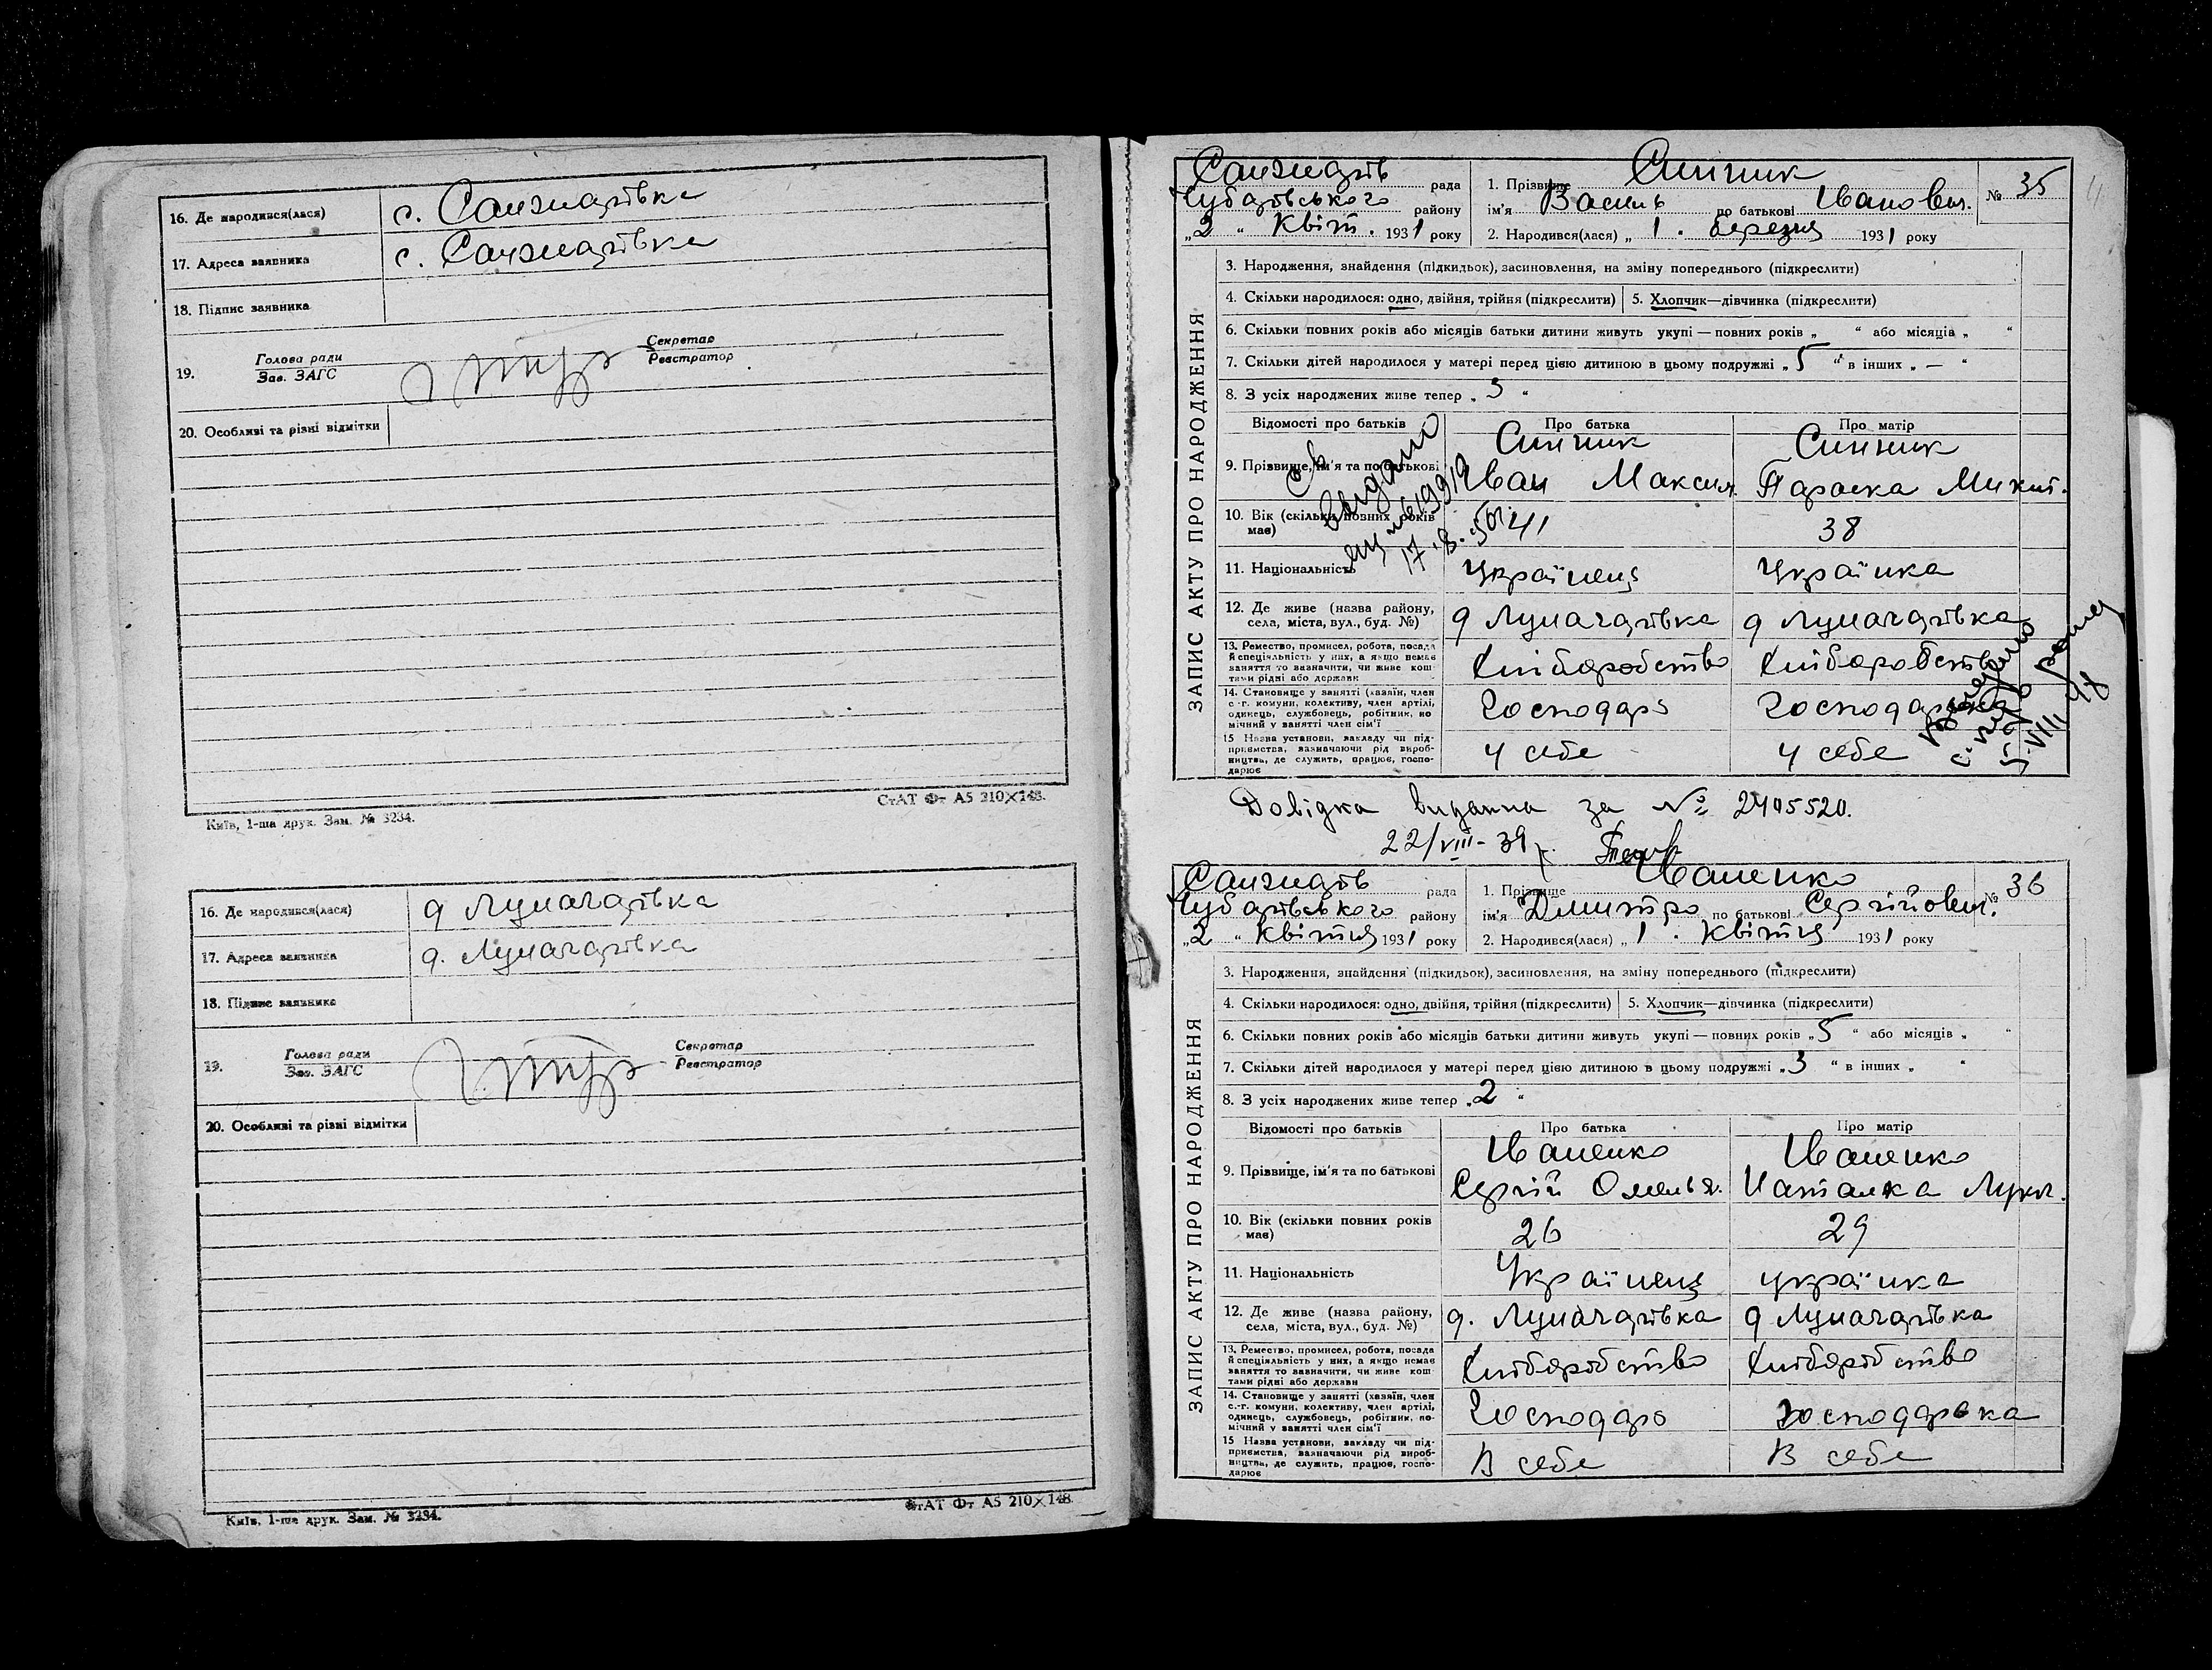 16. Де народився(лася) с. Санжарівка
17. Адреса заявника с. Санжарівка
18. Підпис заявника
19. Голова ради Зав. ЗАГС Секретар Реєстратор
20. Особливі та різні відмітки
СтАТ Фт А5 210×148.
Київ, 1-ша друк. Зам. № 3234.
16. Де народився(лася) д Луначарівка
17. Адреса заявника д. Луначарівка
18. Підпис заявника
19. Голова ради Зав. ЗАГС Секретар Реєстратор
20. Особливі та різні відмітки
СтАТ Фт А5 210×148
Київ, 1-ша друк. Зам. № 3234.
ЗАПИС АКТУ ПРО НАРОДЖЕННЯ
Санжарів рада
Чубарівського району
„2“ Квіт. 1931 року
1. Прізвище
ім'я Василь по батькові Іванович.
№ 35
2. Народився(лася) „1. березня 1931 року
3. Народження, знайдення (підкидьок), засиновлення, на зміну попереднього (підкреслити)
4. Скільки народилося: одно, двійня, трійня (підкреслити) 5. Хлопчик—дівчинка (підкреслити)
6. Скільки повних років або місяців батьки дитини живуть укупі — повних років „ “ або місяців „ “
7. Скільки дітей народилося у матері перед цією дитиною в цьому подружжі „5“ в інших „—“
8. З усіх народжених живе тепер „3“
Відомості про батьків Про батька Про матір
9. Прізвище, ім'я та по батькові
Іван Максим. Параска Микит.
10. Вік (скільки повних років має) 41 38
11. Національність Українець Українка
12. Де живе (назва району, села, міста, вул., буд. №) д Луначарівка д Луначарівка
13. Ремество, промисел, робота, посада й спеціяльність у них, а якщо немає заняття то вазначити, чи живе коштами рідні або держави Хліборобство Хліборобство
14. Становище у занятті (хазяїн, член с.-г. комуни, колективу, член артілі, одинець, службовець, робітник, помічний у занятті член сім'ї Господарь Господарка
15 Назва установи, закладу чи підприємства, вазначаючи рід виробництва, де служить, працює, господарює У себе У себе
видано
17.8.50
Довідка видана за № 2405520.
22/VIII-39
ЗАПИС АКТУ ПРО НАРОДЖЕННЯ
Санжарів рада
Чубарівського району
„2“ Квітня 1931 року
1. Прізвище Іваненко
ім'я Дмитро по батькові Сергійович.
№ 36
2. Народився(лася) „1. Квітня 1931 року
3. Народження, знайдення (підкидьок), засиновлення, на зміну попереднього (підкреслити)
4. Скільки народилося: одно, двійня, трійня (підкреслити) 5. Хлопчик—дівчинка (підкреслити)
6. Скільки повних років або місяців батьки дитини живуть укупі — повних років „5“ або місяців „ “
7. Скільки дітей народилося у матері перед цією дитиною в цьому подружжі „3“ в інших „ “
8. З усіх народжених живе тепер „2“
Відомості про батьків Про батька Про матір
Іваненко Іваненко
9. Прізвище, ім'я та по батькові Сергій Омелья. Наталка Лук.
10. Вік (скільки повних років має) 26 29
11. Національність Українець українка
12. Де живе (назва району, села, міста, вул., буд. №) д. Луначарівка д Луначарівка
13. Ремество, промисел, робота, посада й спеціяльність у них, а якщо немає заняття то вазначити, чи живе коштами рідні або держави Хліборобство Хліборобство
14. Становище у занятті (хазяїн, член с.-г. комуни, колективу, член артілі, одинець, службовець, робітник, помічний у занятті член сім'ї Господарь господарька
15 Назва установи, закладу чи підприємства, вазначаючи рід виробництва, де служить, працює, господарює В себе В себе